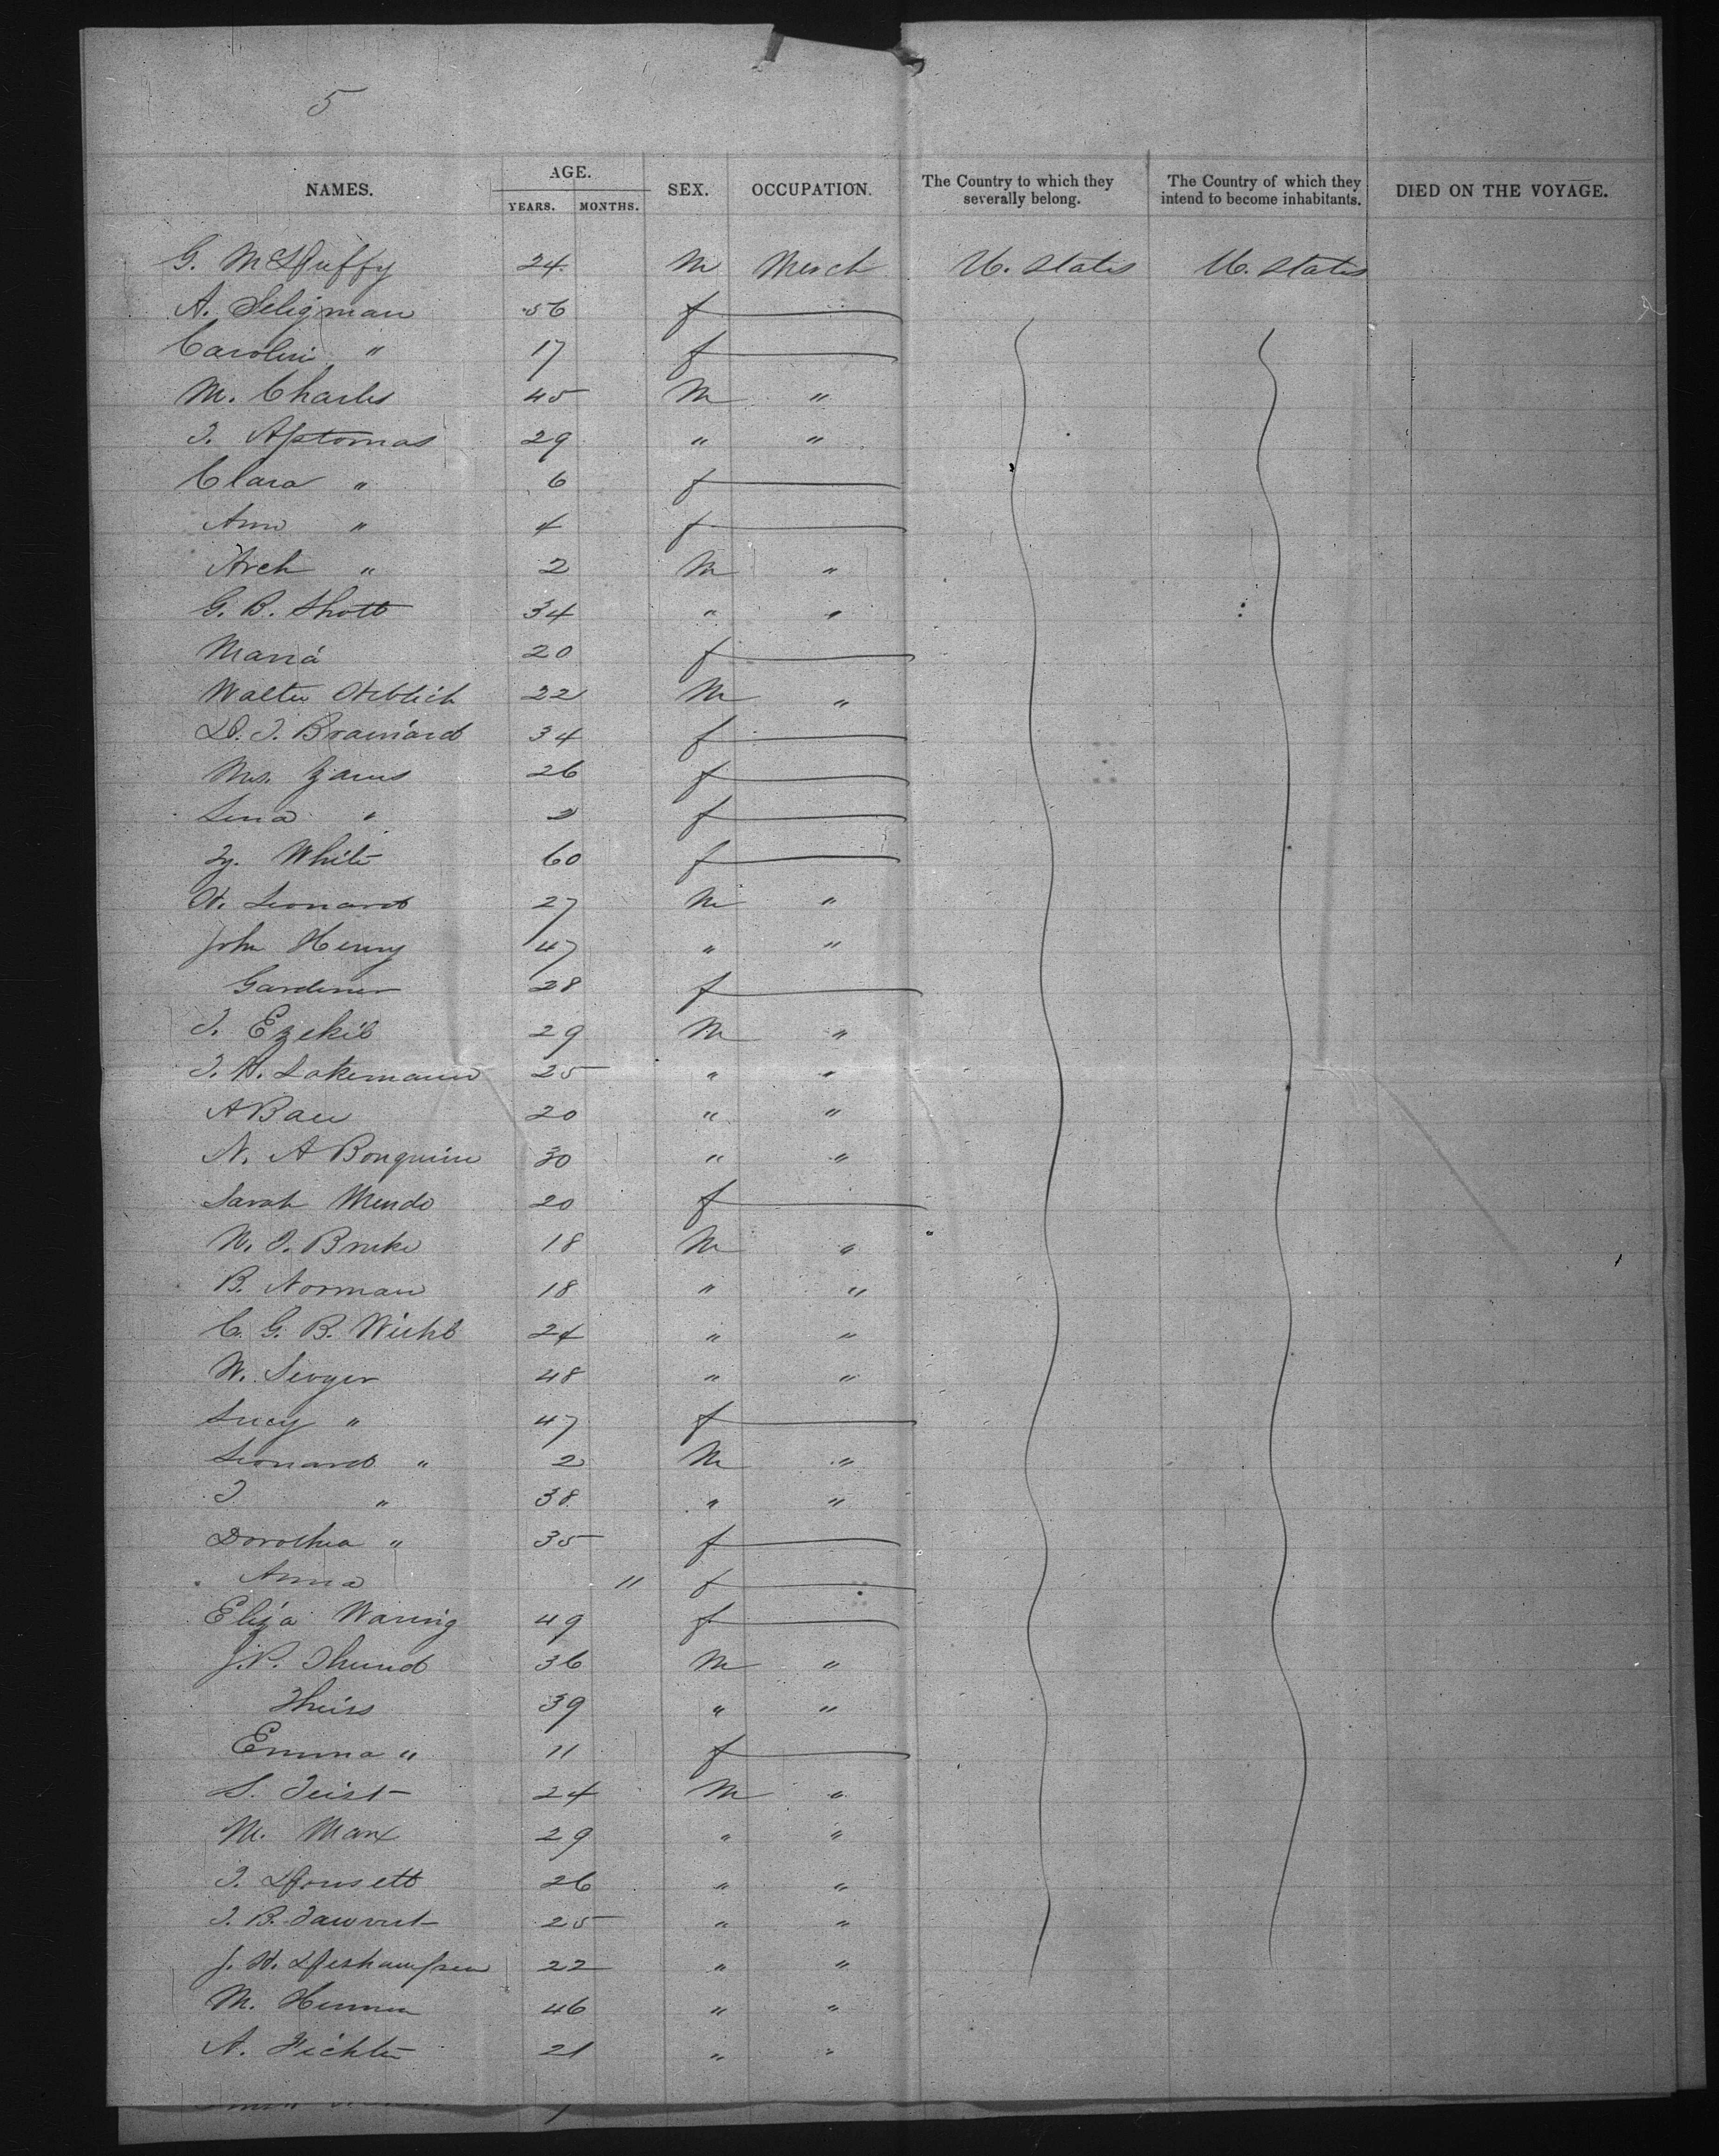 5
NAMES. AGE. SEX. OCCUPATION. The Country to which they severally belong. The Country of which they intend to become inhabitants. DIED ON THE VOYAGE.
YEARS. MONTHS.
G. McDuffy 24 M Merch U. States U. States
A. Seligman 56 f
Carolin " 17 f
M. Charles 45 M "
T. Aptomas 29 " "
Clara " 6 f
Ann " 4 f
Arch " 2 M "
G. B. Shott 34 " "
Maria 20 f
Walter 22 M "
D. T. Brainard 34 f
Mrs. 26 f
Lena " 2 f
White 60 f
H. Leonard 27 M "
John Henry 47 " "
Gardener 28 f
T. Ezekil 29 M "
T. H. Lakemann 25 " "
A Bau 20 " "
N. A Bonquinn 30 " "
Sarah Mendo 20 f
W. T. 18 M "
B. Norman 18 " "
C. G. B. Wichl 24 " "
W. 48 " "
Lucy " 47 f
Leonard " 2 M "
T " 38 " "
Dorothea " 35 f
Anna 11 f
Eliza Waring 49 f
J. P. 36 M "
Theiss 39 " "
Emma " 11 f
S. Teist 24 M "
M. Marx 29 " "
T. Donsett 26 " "
T. B. 25 " "
J. H. 22 " "
M. 46 " "
A. Fichter 21 " "